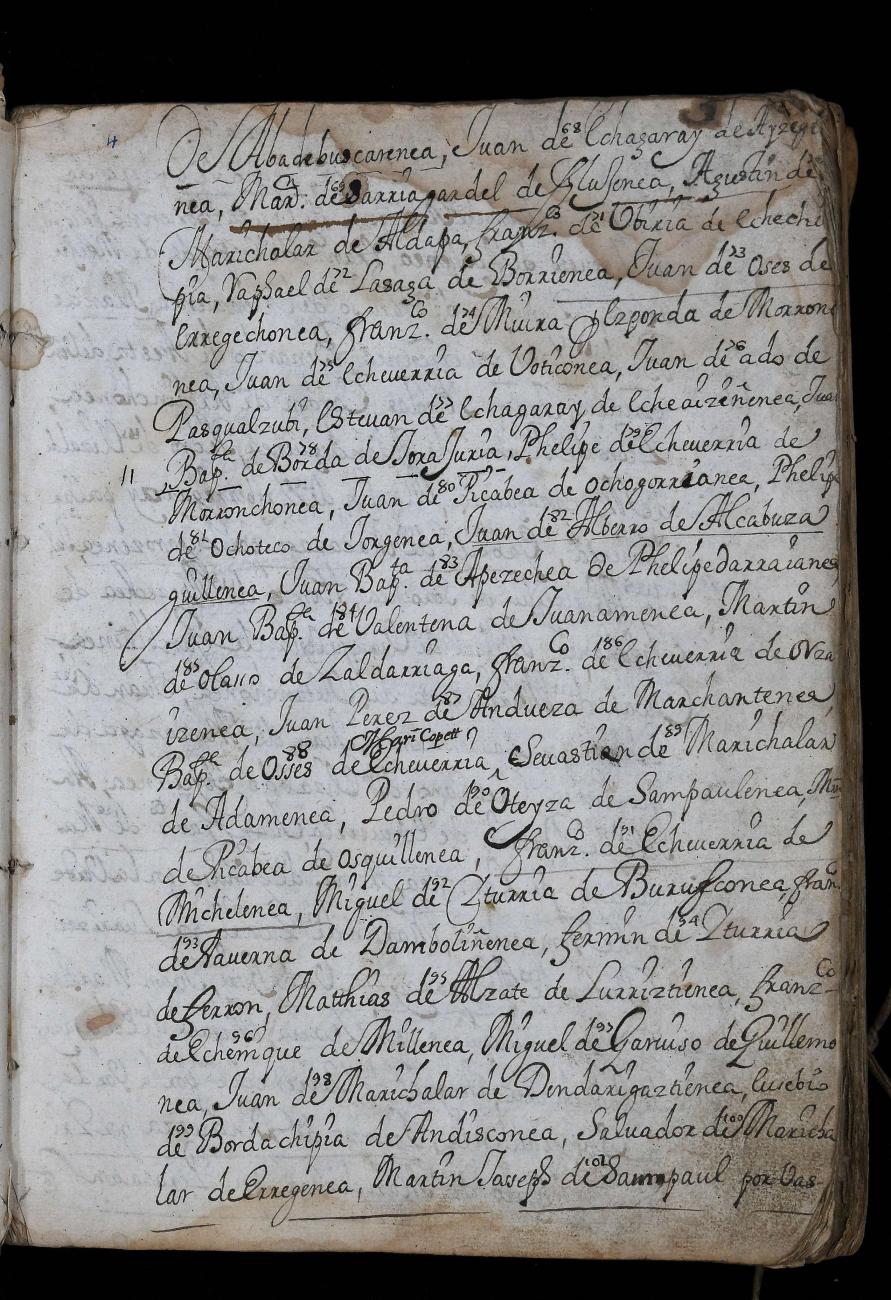 4
De Abadebuscarenea, Juan de 68 Echagaray de Ayzegi
nea, Mar.n de 69 Darriagardel de Elusenea, Agustin de
Marichalar de Aldapa, franz.co de 71 Obiria de Echechi
pia, Raphael de 72 Lasaga de Borrienea, Juan de 73 Oses de
Erregechonea, franz.co de 74 Muira Elzponda de Morron
nea, Juan de 75 Echeverria de Voticonea, Juan de 76 ado de
Pasqualzubi, Estevan de 77 Echagaray de Echeaizeñenea, Jua
11 Bap.ta de Borda 78 de Jorajuria, Phelipe de 79 Echeverria de
Morronchonea, Juan de 80 Picabea de Ochogorrianea, Phelip
de 81 Ochoteco de Jorgenea, Juan de 82 Alberro de Alcabuza
guillenea, Juan Bap.ta de 83 Aperechea de Phelipedarraianea
Juan Bap.ta de 84 Valentena de Juanamenea, Martin
de 185 Olasso de Zaldarriaga, franz.co de 186 Echeverria de Orza
izenea, Juan Perez de 87 Andueza de Marchantenea,
Mari Copett
Bap.ta de Osses 88 de Echeverria, Sevastian de 89 Marichalar
de Adamenea, Pedro de 190 Oteyza de Sampaulenea, Mn
de Picabea de Osquillenea, franz.co de 191 Echeverria de
Michelenea, Miguel de 192 Yturria de Burusconea, fran
de 193 Taverna de Damboliñenea, fermin de 94 Yturria
de ferron, Matthias de 195 Alzate de Lurriztienea, franz.co
de Echenique 96 de Millenea, Miguel de 97 Garuiso de Guillermo
nea, Juan de 98 Marichalar de Dendarigaztienea, Eusebio
de 199 Bordachipia de Andisconea, Salvador de 100 Maricha
lar de Erregenea, Martin Joseph de 101 Sampaul por Vas